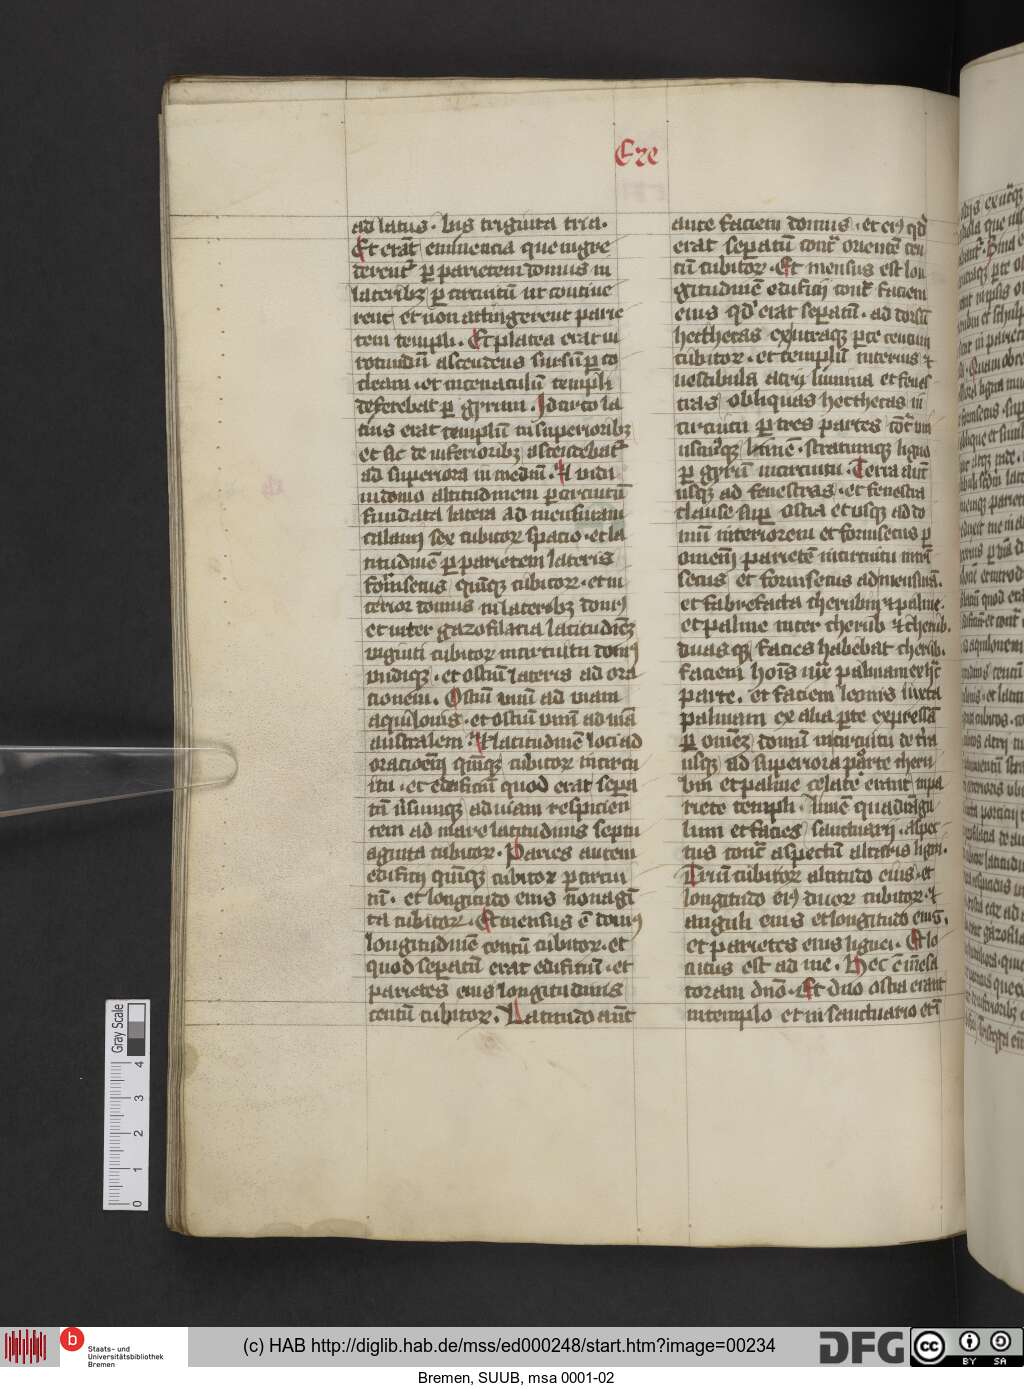 Eze
ad latus . bis triginta tria .
Et erāt eminencia que ingre
derent᷑ p̱ parietem domus in
lateribꝫ p̱ circuitū ut contine
rent et non attingerent parie
tem templi . Et platea erat in
rotundū ascendens sursū p̱ co
cleam . et in cenaculū templi
deferebat p̱ gyrum . Idcirco la
tius erat templū in superioribꝫ
et sic de inferioribꝫ ascendebat᷑
ad superiora in mediū . Et vidi
in domo altitudinem p̱ circuitū
fundata latera ad mensuram
calami sex cubitoꝝ spacio . et la
titudinē p̱ parietem lateris
forinsecus quīqꝫ cubitoꝝ . et in
terior domus in lateribꝫ domꝰ
et inter gazofilatia latitudinē
viginti cubitoꝝ in circuitu domꝰ
undiqꝫ . et ostiū lateris ad ora
tionem . Ostiū unū ad viam
aquilonis . et ostiū unū ad viā
australem . Et latitudinē loci ad
orationē quīqꝫ cubitoꝝ in circu
itu . et edificiū quod erat sepa
tū ūsumqꝫ ad viam respicien
tem ad mare latitudinis septu
aginta cubitoꝝ . Paries autem
edificij quīqꝫ cubitoꝝ p̱ circui
tū . et longitudo eius nonagī
ta cubitoꝝ . Et mensus ē domꝰ
longitudinē centū cubitoꝝ . et
quod sepatū erat edificiū . et
parietes eius longitudinis
centū cubitoꝝ . Latitudo autē
ante faciem domus . et eiꝰ qd̓
erat sepatū cont᷑ orientē cen
tū cubitoꝝ . Et mensus est lon
gitudinē edificij cont᷑ faciem
eius qd̓ erat sepatū . ad dorsū
hecthecas ex utraqꝫ p̱te centum
cubitoꝝ . et templū interius ⁊
vestibula atrij limina et fenes
tras obliquas hecthecas in
circuitu p̱ tres partes cōt᷑ uni
uscuiꝰqꝫ limē . stratumqꝫ ligno
p̱ gyrū in circuitu . Terra autē
usqꝫ ad fenestras . et fenestra
clause sup ostia et usqꝫ ad do
mū interiorem et forinsecus p̱
omnem parietē in circuitu intrī
secus et forinsecus ad mensurā .
et fabrefacta cherubin ⁊ palme .
et palme inter cherub ⁊ cherub .
duasqꝫ facies habebat cherub .
faciem hoīs iux̄ palmam ex hac
parte . et faciem leonis iuxta
palmam ex alia p̱te expressā
p̱ omnē domū in circuitu de tra
usqꝫ ad superiora parte cheru
bin et palme celate erant in pa
riete templi . Limē quadrāgu
lum et facies sanctuarij . aspec
tus cont᷑ aspectū altaris lignei .
Triū cubitoꝝ altitudo eius . et
longitudo eiꝰ duoꝝ cubitoꝝ . ⁊
anguli eius et longitudo eius .
et parietes eius lignei . Et lo
cutus est ad me . Hec ē mēsa
coram dn̄o . Et duo ostia erant
in templo et in sanctuario etī
Gray Scale
4
3
2
1
0
b
Staats- und
Universitätsbibliothek
Bremen
(c) HAB http://diglib.hab.de/mss/ed000248/start.htm?image=00234
DFG
cc
BY SA
Bremen, SUUB, msa 0001-02